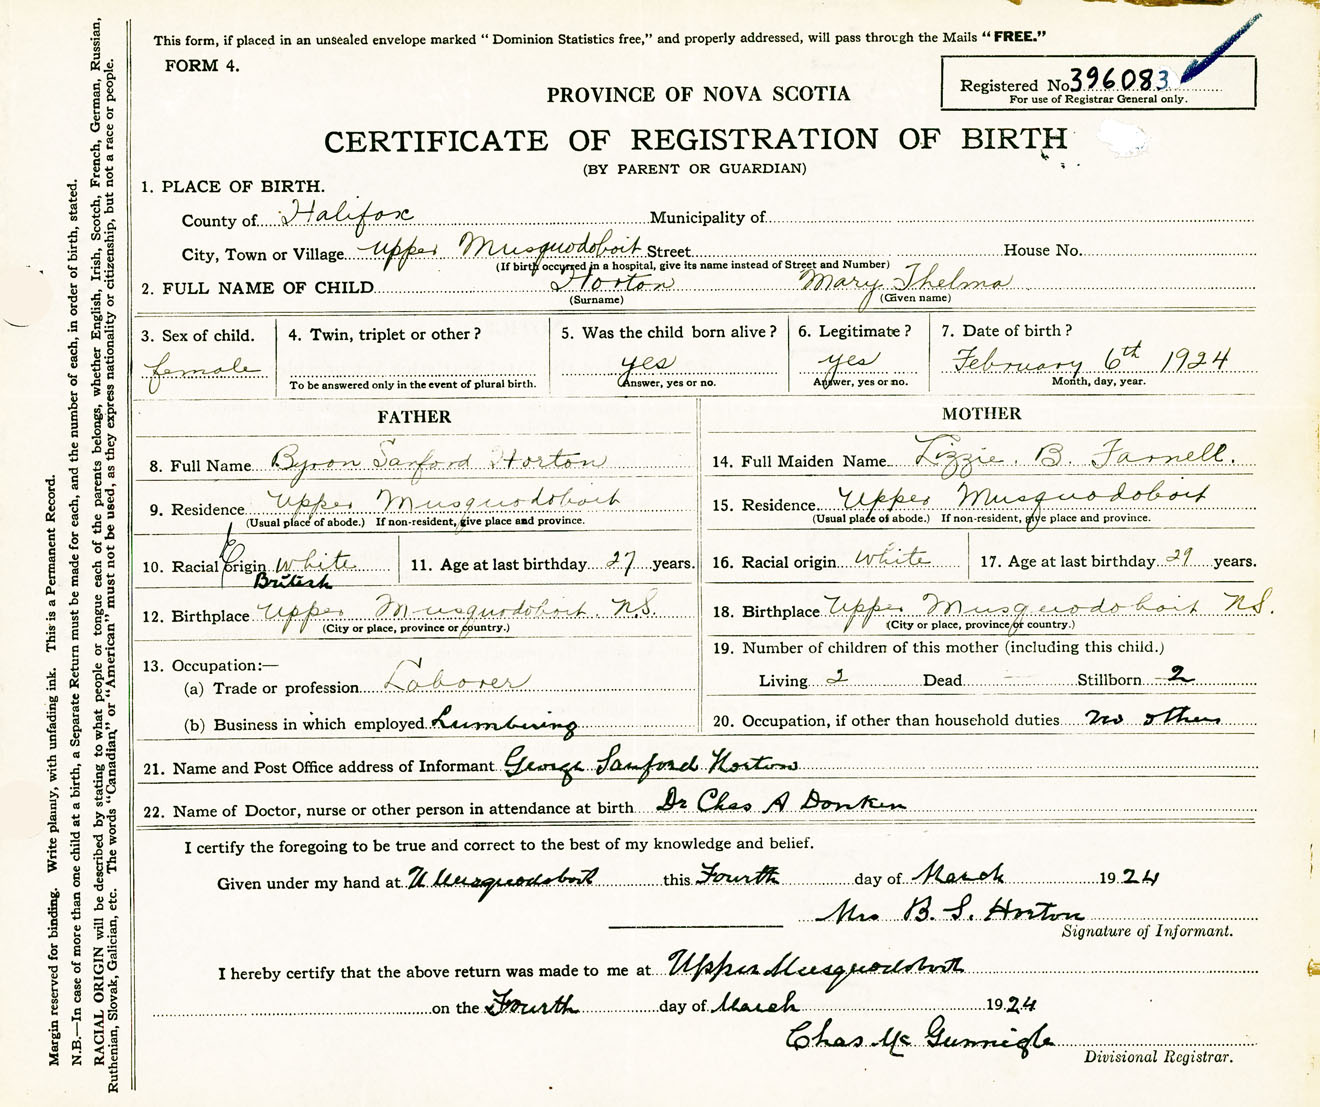 This form, if placed in an unsealed envelope marked “ Dominion Statistics free,” and properly addressed, will pass through the Mails “ FREE.”
FORM 4.
Registered No. 396083
For use of Registrar General only.
PROVINCE OF NOVA SCOTIA
CERTIFICATE OF REGISTRATION OF BIRTH
(BY PARENT OR GUARDIAN)
1. PLACE OF BIRTH.
County of Halifax Municipality of
City, Town or Village Upper Musquodoboit Street House No.
(If birth occurred in a hospital, give its name instead of Street and Number)
2. FULL NAME OF CHILD Horton Mary Thelma
(Surname) (Given name)
3. Sex of child. 4. Twin, triplet or other ? 5. Was the child born alive ? 6. Legitimate ? 7. Date of birth ?
female yes yes February 6th 1924
To be answered only in the event of plural birth. Answer, yes or no. Answer, yes or no. Month, day, year.
FATHER
8. Full Name Byron Sanford Horton
9. Residence Upper Musquodoboit
(Usual place of abode.) If non-resident, give place and province.
10. Racial origin White 11. Age at last birthday 27 years.
British
12. Birthplace Upper Musquodoboit N.S.
(City or place, province or country.)
13. Occupation:—
(a) Trade or profession Laborer
(b) Business in which employed Lumbering
MOTHER
14. Full Maiden Name Lizzie. B. Farnell.
15. Residence Upper Musquodoboit
(Usual place of abode.) If non-resident, give place and province.
16. Racial origin White 17. Age at last birthday 29 years.
18. Birthplace Upper Musquodoboit N.S.
(City or place, province or country.)
19. Number of children of this mother (including this child.)
Living 2 Dead — Stillborn 2
20. Occupation, if other than household duties no others
21. Name and Post Office address of Informant George Sanford Horton
22. Name of Doctor, nurse or other person in attendance at birth Dr Chas A Donkin
I certify the foregoing to be true and correct to the best of my knowledge and belief.
Given under my hand at U Musquodoboit this Fourth day of March 1924
Mrs B. S. Horton
Signature of Informant.
I hereby certify that the above return was made to me at Upper Musquodoboit
on the Fourth day of March 1924
Chas Mc Gunnigle
Divisional Registrar.
Margin reserved for binding. Write plainly, with unfading ink. This is a Permanent Record.
N.B.—In case of more than one child at a birth, a Separate Return must be made for each, and the number of each, in order of birth, stated.
RACIAL ORIGIN will be described by stating to what people or tongue each of the parents belongs, whether English, Irish, Scotch, French, German, Russian,
Ruthenian, Slovak, Galician, etc. The words “Canadian,” or “American” must not be used, as they express nationality or citizenship, but not a race or people.